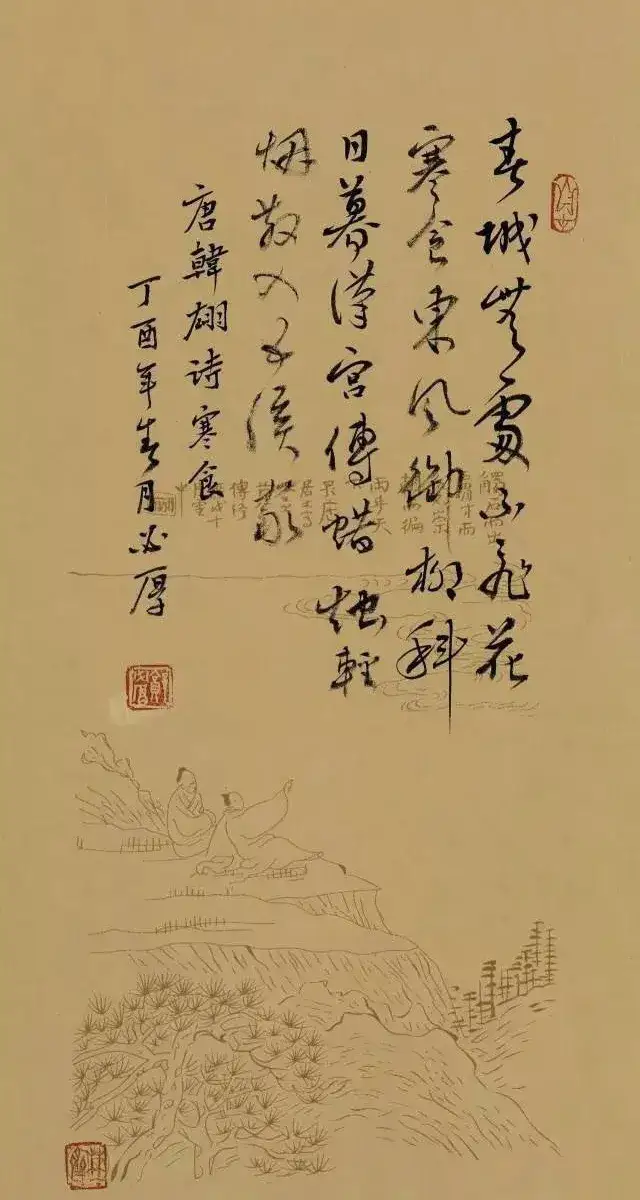 春城無處不飛花
寒食東風御柳斜
日暮漢宮傳蜡烛輕
烟散入五侯家
唐韓翃詩寒食
丁酉年春月必厚